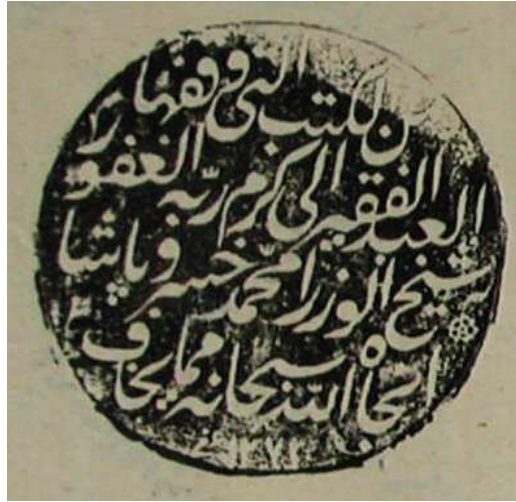 ن لكتب التى وقفها
العبد الفقير الى كرم ربّه الغفور
شيخ الوزرا محمد خسرو پاشا
انجاه الله سبحانه مما يخاف